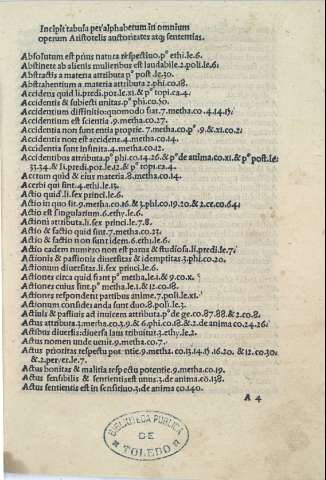 Incipit tabula per alphabetum in omnium
operum Aristotelis auctoritates atq; sententias.
Absolutum est prius natura respectiuo.pº ethi.le.6.
Abstinere ab alienis mulieribus est laudabile.2.poli.le.6:
Abstractis a materia attributa pº post.le.30.
Abstrahentium a materia attributa 2.phi.co.18.
Accidens quid li.predi.por.le.xi.& pº topi.ca.4.
Accidentis & subiecti unitas.pº phi.co.30.
Accidentium diffinitio:quomodo fiat.7.metha.co.4.14.15:
Accidentium est scientia.9.metha.co.27.
Accidentia non sunt entia proprie.7.metha.co.pº.9.&.xi.co.2:
Accidentia non est accidens.4.metha.co.14.
Accidentia sunt infinita.4.metha.co.12.
Accidentibus attributa.pº phi.co.14.26.& pº de anima.co.xi.& pº post.le:
33.34.& li.predi.por.le.12.& pº topi.ca.4.
Accerbi qui sint.4.ethi.le.13.
Actio quid.li.sex princi.le.6.
Actio in quo sit.9.metha.co.16.& 3.phi.co.19.20.& 2.ce.co.64:
Actio est singularium.6.ethy.le.6.
Actioni attributa.li.sex princi.le.7.8.
Actio & factio quid sint.7.metha.co.23.
Actio & factio non sunt idem.6.ethi.le.6.
Actio eadem numero non est parua & studiosa.li.predi.le.7:
Actionis & passionis diuersitas & idemptitas.3.phi.co.20.
Actionum diuersitas.li.sex princi.le.6.
Actiones circa quid fiant pº metha.le.1.& 9.co.x.
Actiones cuius sint.pº metha.le.1.& 12.co.18.
Actiones respondent partibus anime.7.poli.le.xi.
Actionum consideranda sunt duo.8.poli.le.3.
Actiuis & passiuis ad inuicem attributa.pº de ge.co.87.88.& 2.co.8.
Actus attributa.3.metha.co.3.9.& 6.phi.co.18.& 2.de anima.co.24.26:
Actibus diuersis:diuersa laus tribuitur.3.ethy.le.2.
Actus nomen unde uenit.9.metha.co.7.
Actus prioritas respectu potentie.9.metha.co.13.14.15.16.20.& 12.co.30:
& 2.perier.le.7.
Actus bonitas & malitia respectu potentie.9.metha.co.19.
Actus sensibilis & sentientis est unus.3.de anima.co.138.
Actus sentientis est in sensitiuo.3.de anima co.140.
A 4
BIBLIOTECA PUBLICA
DE
TOLEDO